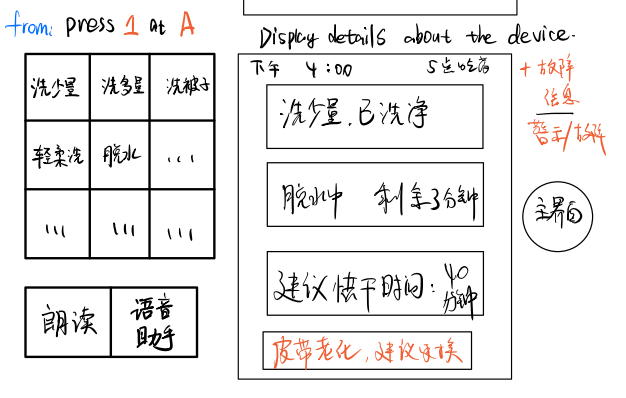 from: press 1 at A
洗少量
洗多量
洗被子
轻柔洗
脱水
...
...
...
...
朗读
语音
助手
Display details about the device.
下午 4:00
5点吃药
洗少量,已洗净
脱水中 剩余3分钟
建议烘干时间:40
分钟
皮带老化,建议更换
+故障
信息
警示/故障
主界面